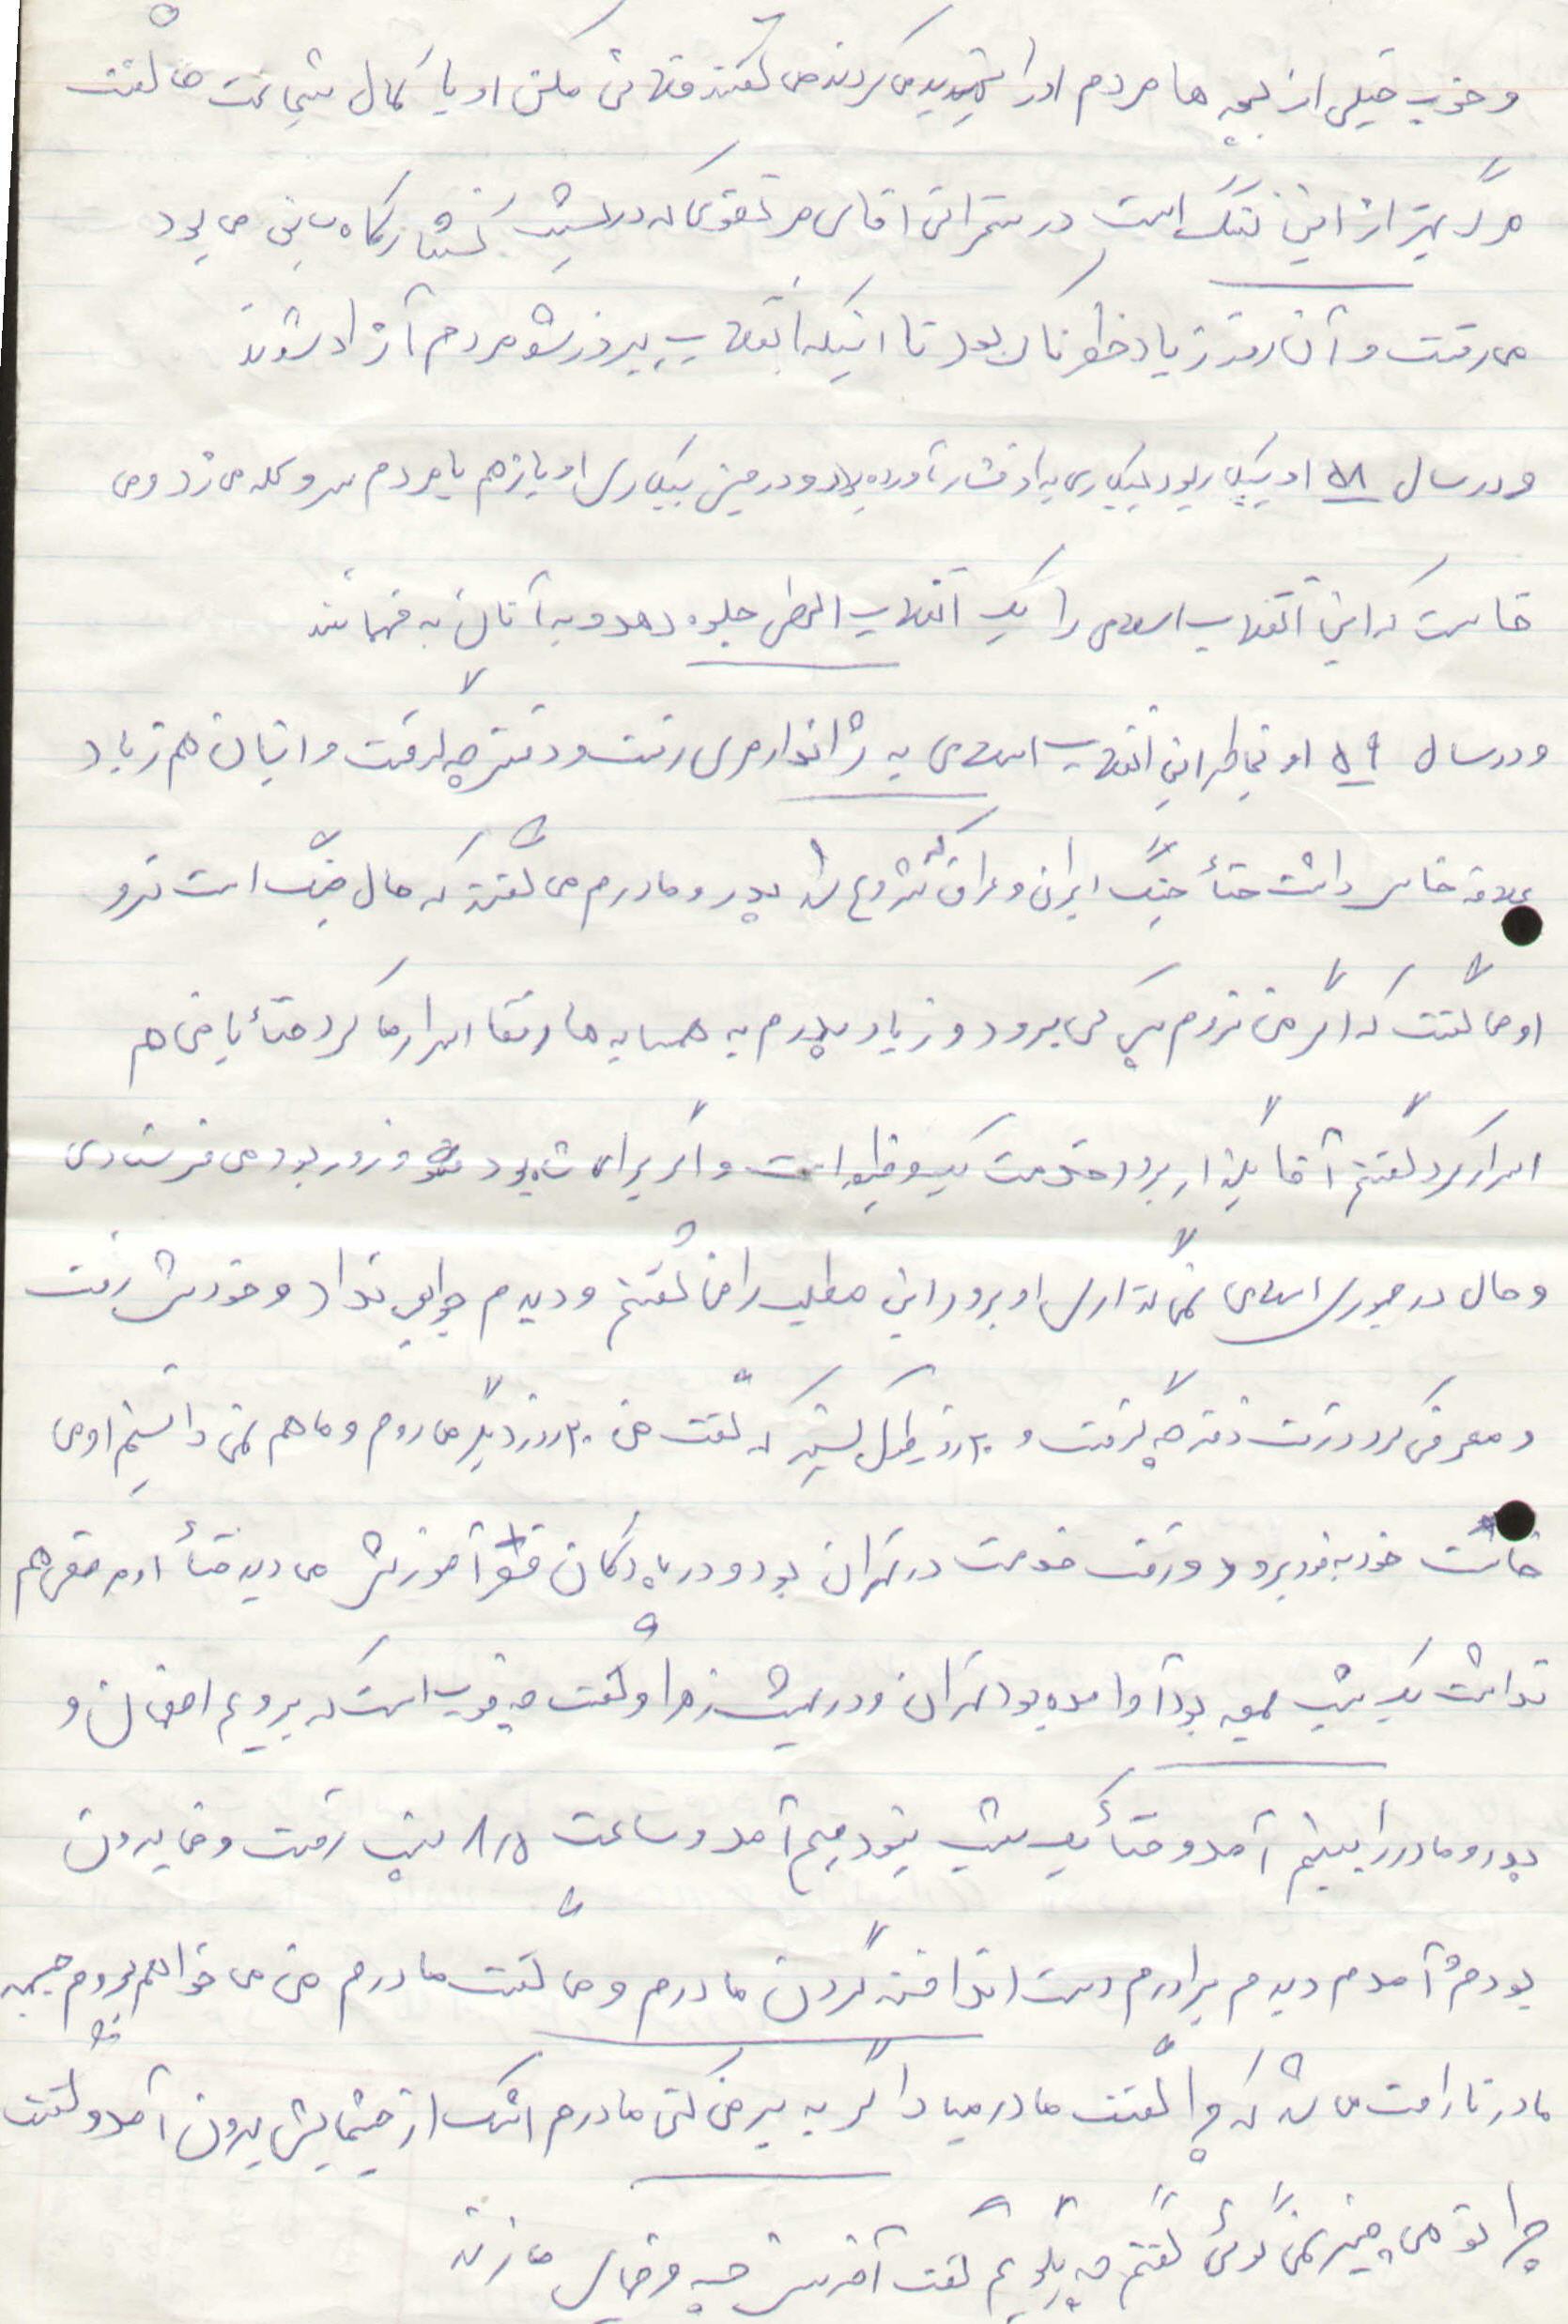 و خوب خیلی از بچه ها مردم او را تهدید می کردند می گفتند فلانی مکن او با کمال شجاعت می گفت
مرگ بهتر از این ننگ است در سخرانی اقای مرتقوی که در
می رفت و آن روز زیاد خطرناک بود تا اینکه انقلاب پیروز شد مردم آزاد شوند
و در سال ۵۸ او بیکار بود بیکاری به او فشار آورده بود و در عین بیکاری او باز هم با مردم سر و کله می زد و می
خاست که این انقلاب اسلامی را یک انقلاب الهی جلوه دهد و به آنان به فهماند
و در سال ۵۹ او بخاطر این انقلاب اسلامی به ژاندارمری رفت و دفترچه گرفت و ایشان هم زیاد
علاقه خاس داشت حتأ جنگ ایران و عراق که شروع شد پدر و مادرم می گفتند که حال جنگ است نرو
او می گفت که اگر من نروم پس کی برود و زیاد پدرم به همسایه ها رفقا اسرار می کرد حتأ با من هم
اسرار کرد گفتم آقا بگذار برود خدمت یک وظیفه است و اگر برای شاه بود و زور بود می فرستادی
و حال در جمهوری اسلامی نمی گذاری او برود این مطلب را من گفتم و دیدم جوابی نداد و خودش رفت
و معرفی کرد و رفت دفترچه گرفت و ۲۰ روز طول کشید که گفت من ۲۰ روز دیگر می روم و ما هم نمی دانستیم او می
خاست خود به خود برود و رفت خدمت در تهران بود و در پادگان آموزش می دید حتأ او مرخصی هم
نداشت یک شب جمعه بود آ وامده بود تهران و در بهشت زهرا و گفت چه خوب است که برویم اصفهان و
پدر و مادر را ببینیم آمد و حتأ یک شب پنجم آمد و ساعت ۸/۵ شب رفت و من بیرون
بودم و آمدم دیدم برادرم دست انداخته گردن مادرم و می گفت مادرم من می خواهم بروم جبهه
مادر ناراحت می شد که چرا گفت مادر مبادا گریه بر من کنی مادرم اشک از چشمایش بیرون آمد و گفت
چرا تو هی چیز نمی گوئی گفتم چه بگویم گفت آخرش چه وضای مازند